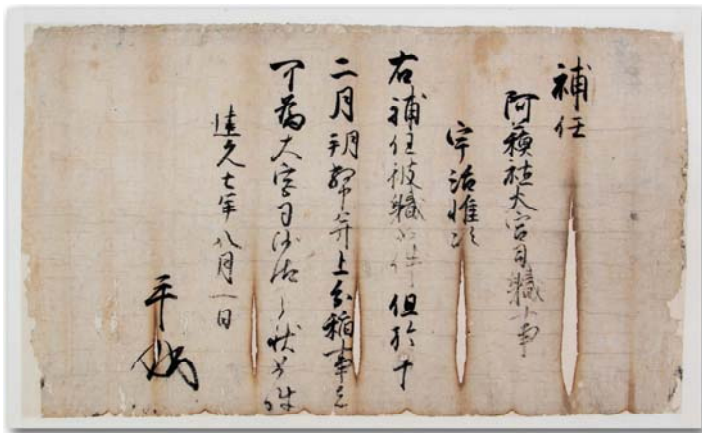 補任
阿蘇社大宮司職事
宇治惟次
右補任彼職如件 但於十
二月朔幣并上分稲事者
可為大宮司沙汰之状如件
建久七年八月一日
平